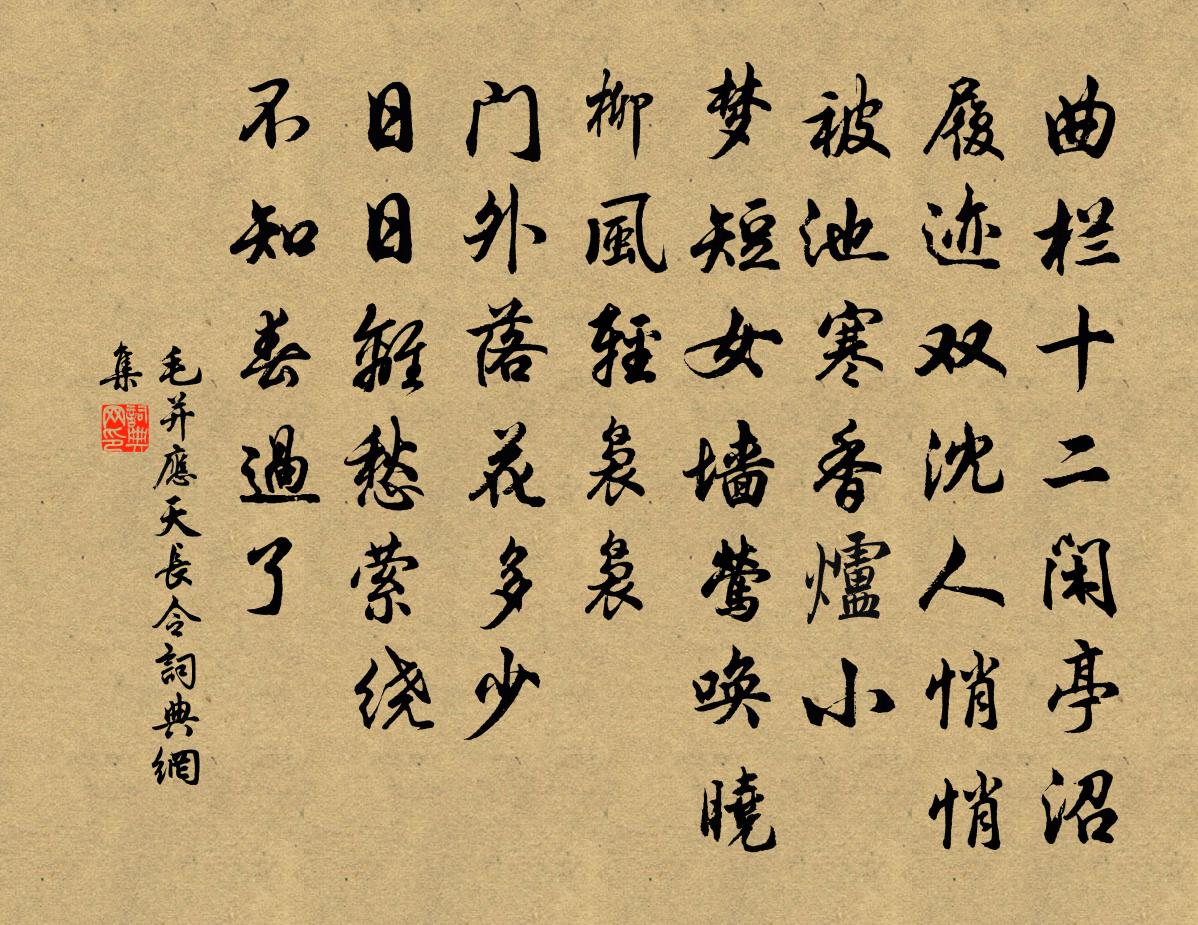 曲栏十二闲亭沼
履迹双沈人悄悄
被池寒香爐小
梦短女墙莺唤曉
柳風輕袅袅
门外落花多少
日日離愁萦绕
不知春過了
毛并應天長令詞典網
集
詞典网印